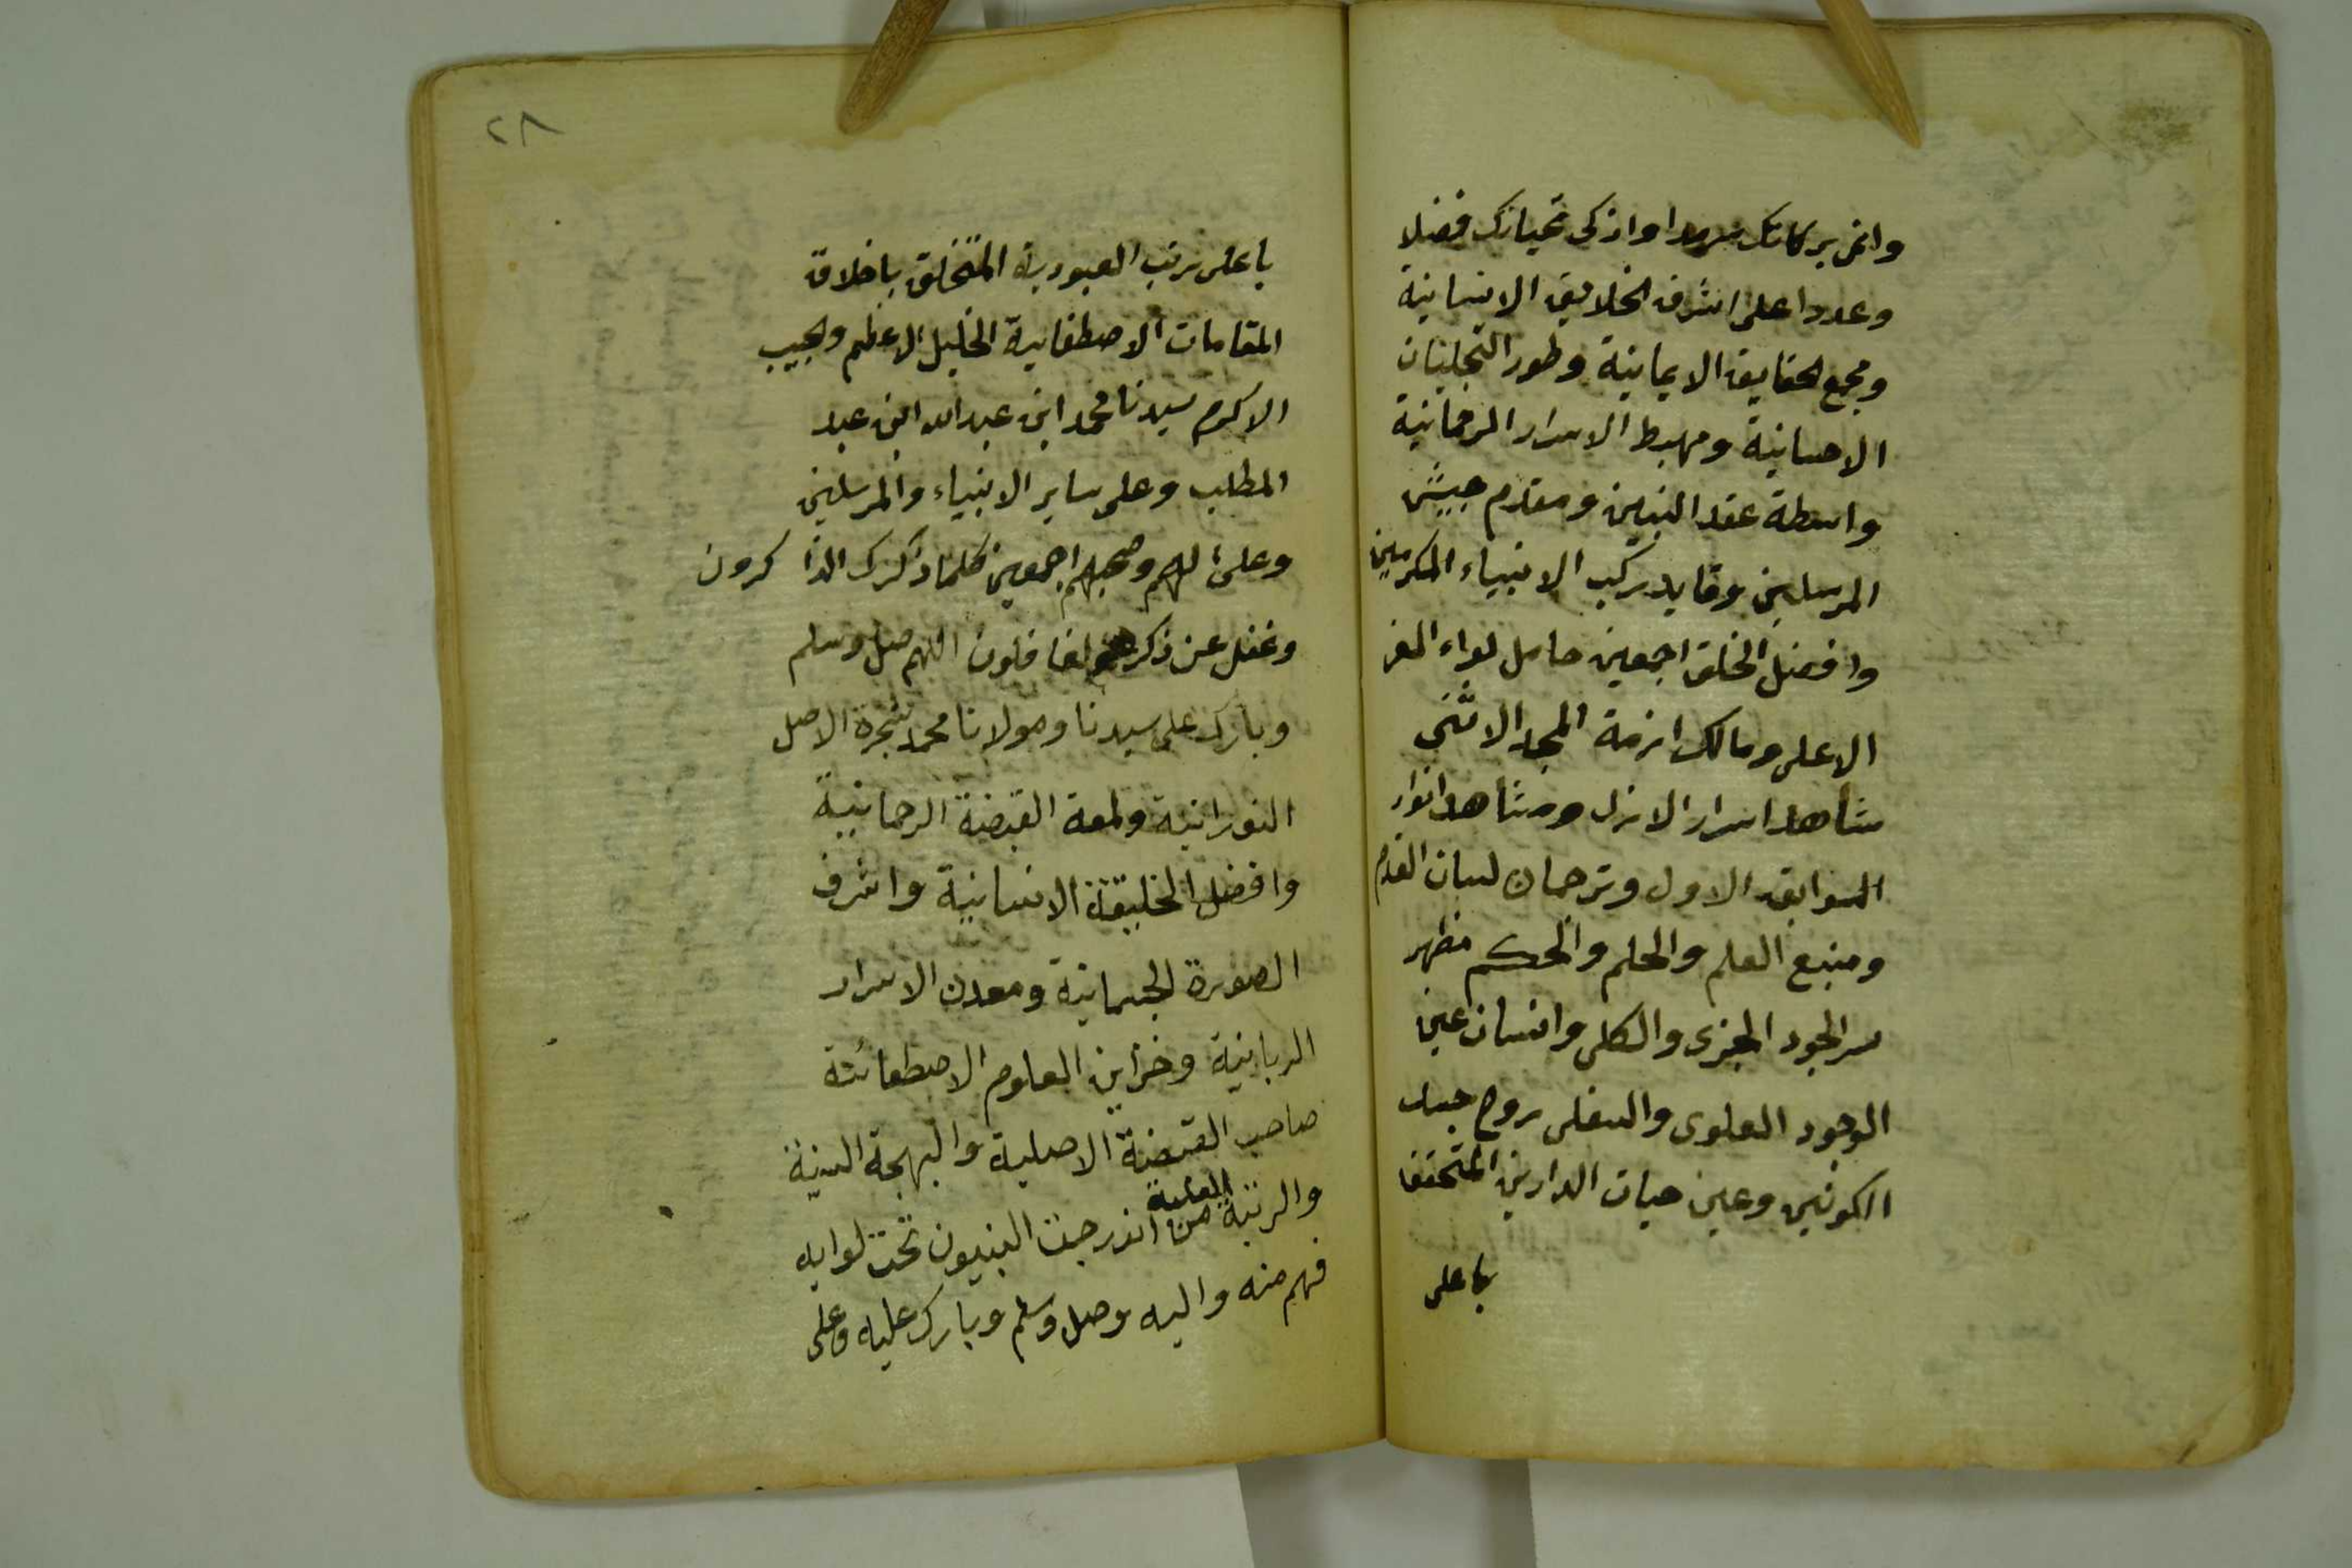 وانمى بركاتك سرمدا وازكى تحياتك فضلا
وعددا على اشرف الخلايق الانسانية
ومجمع الحقايق الايمانية وطور التجليات
الاحسانية ومهبط الاسرار الرحمانية
واسطة عقد النبيين ومقدم جيش
المرسلين وقايد ركب الانبياء المكرمين
وافضل الخلق اجمعين حامل لواء العز
الاعلى ومالك ازمة المجد الاسنى
شاهد اسرار الازل ومشاهد انوار
السوابق الاول وترجمان لسان القدم
ومنبع العلم والحلم والحكم مظهر
سر الجود الجزى والكلى وانسان عين
الوجود العلوى والسفلى روح جسد
الكونين وعين حيات الدارين المتحققا
باعلى
٢٨
باعلى رتب العبودية المتخلق باخلاق
المقامات الاصطفايية الخليل الاعظم والحبيب
الاكرم سيدنا محمد ابن عبد الله ابن عبد
المطلب وعلى ساير الانبياء والمرسلين
وعلى الهم وصحبهم اجمعين كلما ذكرك الذاكرون
وغفل عن ذكرهم الغافلون اللهم صل وسلم
وبارك على سيدنا ومولانا محمد شجرة الاصل
النورانية ولمعة القبضة الرحمانية
وافضل الخليقة الانسانية واشرف
الصورة الجسمانية ومعدن الاسرار
الربانية وخزاين العلوم الاصطفائية
صاحب القبضة الاصلية والبهجة السنية
والرتبة العلية من اندرجت النبيون تحت لوايه
فهم منه واليه وصل وسلم وبارك عليه وعلى